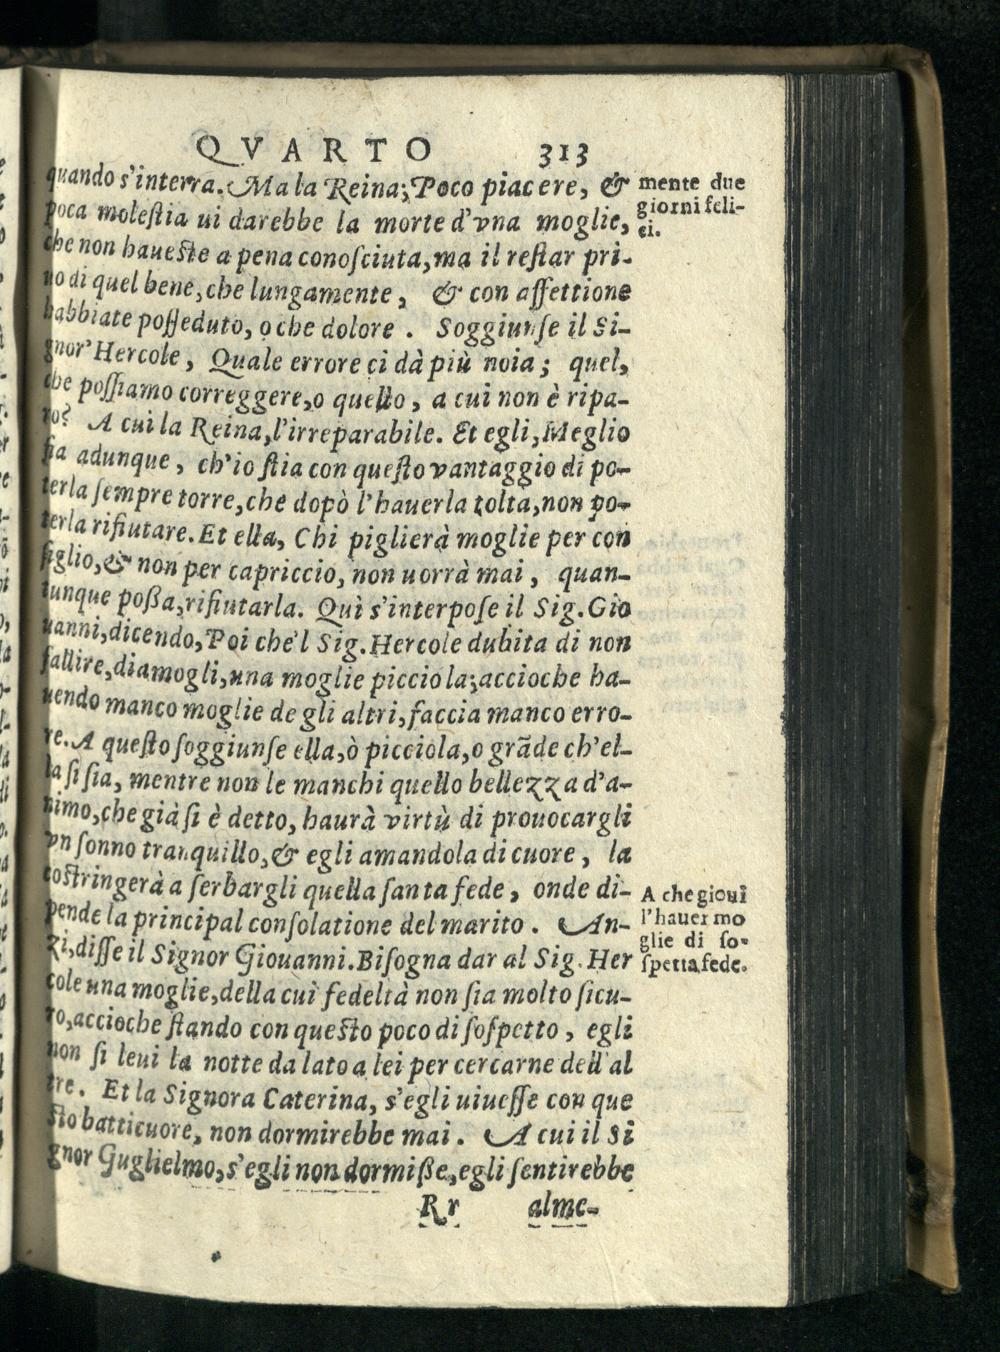 QVARTO 313
quando s'interra. Ma la Reina; Poco piacere, &
poca molestia ui darebbe la morte d'vna moglie,
che non haueste a pena conosciuta, ma il restar pri-
uo di quel bene, che lungamente, & con affettione
habbiate posseduto, o che dolore. Soggiunse il Si-
gnor' Hercole, Quale errore ci dà più noia; quel,
che possiamo correggere, o quello, a cui non è ripa-
ro? A cui la Reina, l'irreparabile. Et egli, Meglio
fia adunque, ch'io stia con questo vantaggio di po-
terla sempre torre, che dopò l'hauerla tolta, non po-
terla rifiutare. Et ella, Chi piglierà moglie per con
siglio, & non per capriccio, non uorrà mai, quan-
tunque possa, rifiutarla. Quì s'interpose il Sig. Gio
uanni, dicendo, Poi che'l Sig. Hercole dubita di non
fallire, diamogli, una moglie picciola; accioche ha-
uendo manco moglie de gli altri, faccia manco erro-
re. A questo soggiunse ella, ò picciola, o grãde ch'el-
la si sia, mentre non le manchi quello bellezza d'a-
nimo, che già si è detto, haurà virtù di prouocargli
vn sonno tranquillo, & egli amandola di cuore, la
costringerà a serbargli quella santa fede, onde di-
pende la principal consolatione del marito. An-
zi, disse il Signor Giouanni. Bisogna dar al Sig. Her
cole una moglie, della cui fedeltà non sia molto sicu-
ro, accioche stando con questo poco di sospetto, egli
non si leui la notte da lato a lei per cercarne dell'al
tre. Et la Signora Caterina, s'egli uiuesse con que
sto batticuore, non dormirebbe mai. A cui il Si
gnor Guglielmo, s'egli non dormisse, egli sentirebbe
Rr alme-
mente due
giorni feli-
ci.
A che gioui
l'hauer mo
glie di so-
spetta fede.